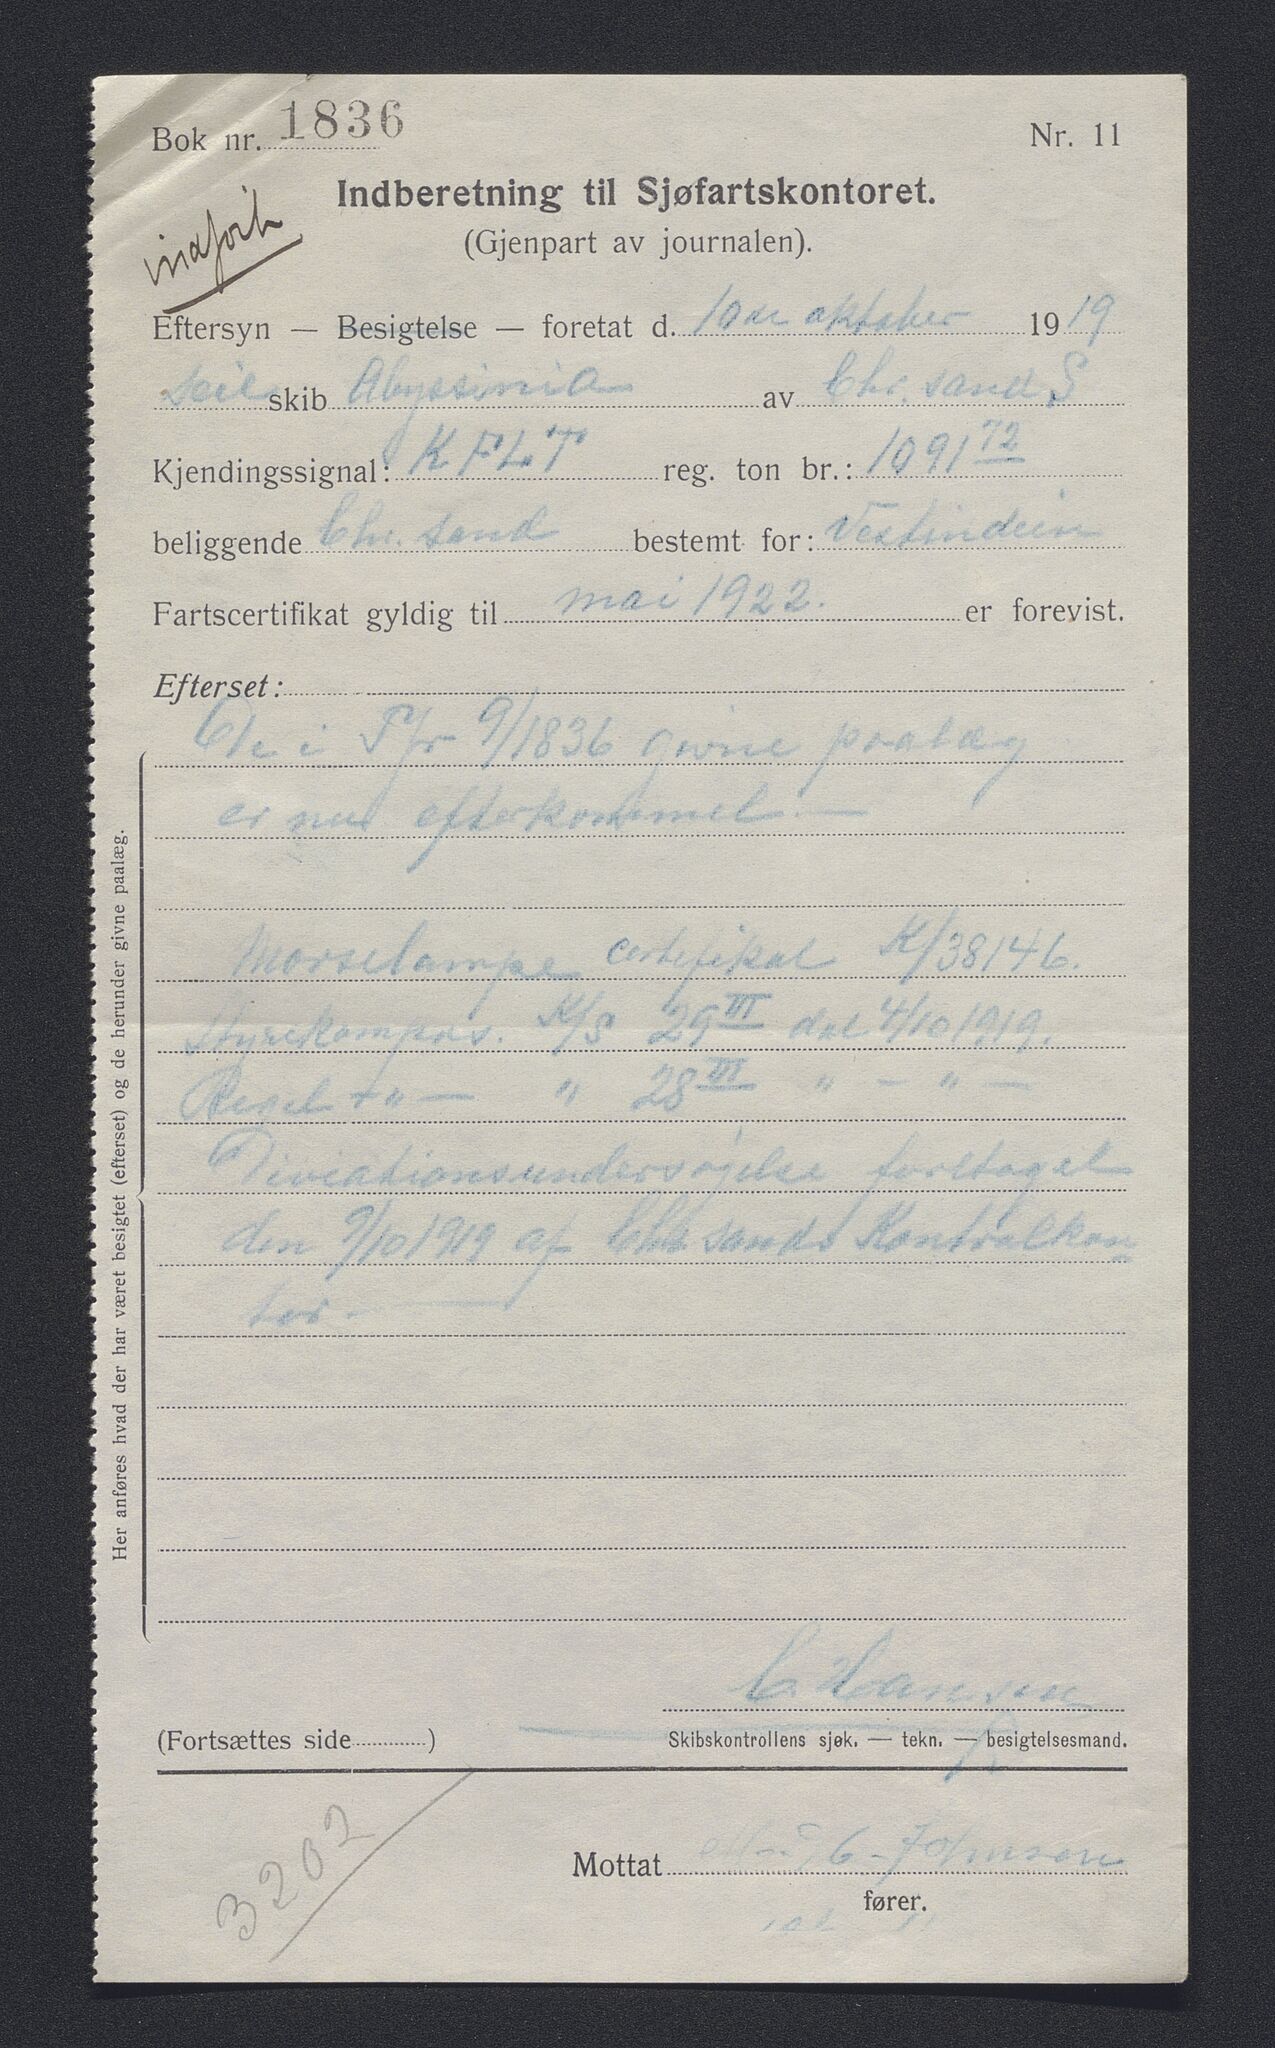 Bok nr. 1836
Nr. 11
Indberetning til Sjøfartskontoret.
(Gjenpart av journalen).
indført
Eftersyn — Besigtelse — foretat d. 10de oktober 1919
seil skib Abyssinia av Chr. sand S
Kjendingssignal: KFLT reg. ton br.: 1091 72
beliggende Chr. sand bestemt for: Vestindien
Fartscertifikat gyldig til mai 1922. er forevist.
Efterset:
De i 9/1836 givne paalæg
er nu efterkommet. —
Morselampe certefikat K/38146.
Styrekompas. K/S 29 III dat 4/10 1919.
" — " 28 III " — " —
Diviationsundersøgelse foretaget
den 9/10 1919 af Chr sands Kontrolkon
tor. —
Her anføres hvad der har været besigtet (efterset) og de herunder givne paalæg.
C. Hansen
(Fortsættes side )
Skibskontrollens sjøk. — tekn. — besigtelsesmand.
3202
Mottat Johnsen
fører.